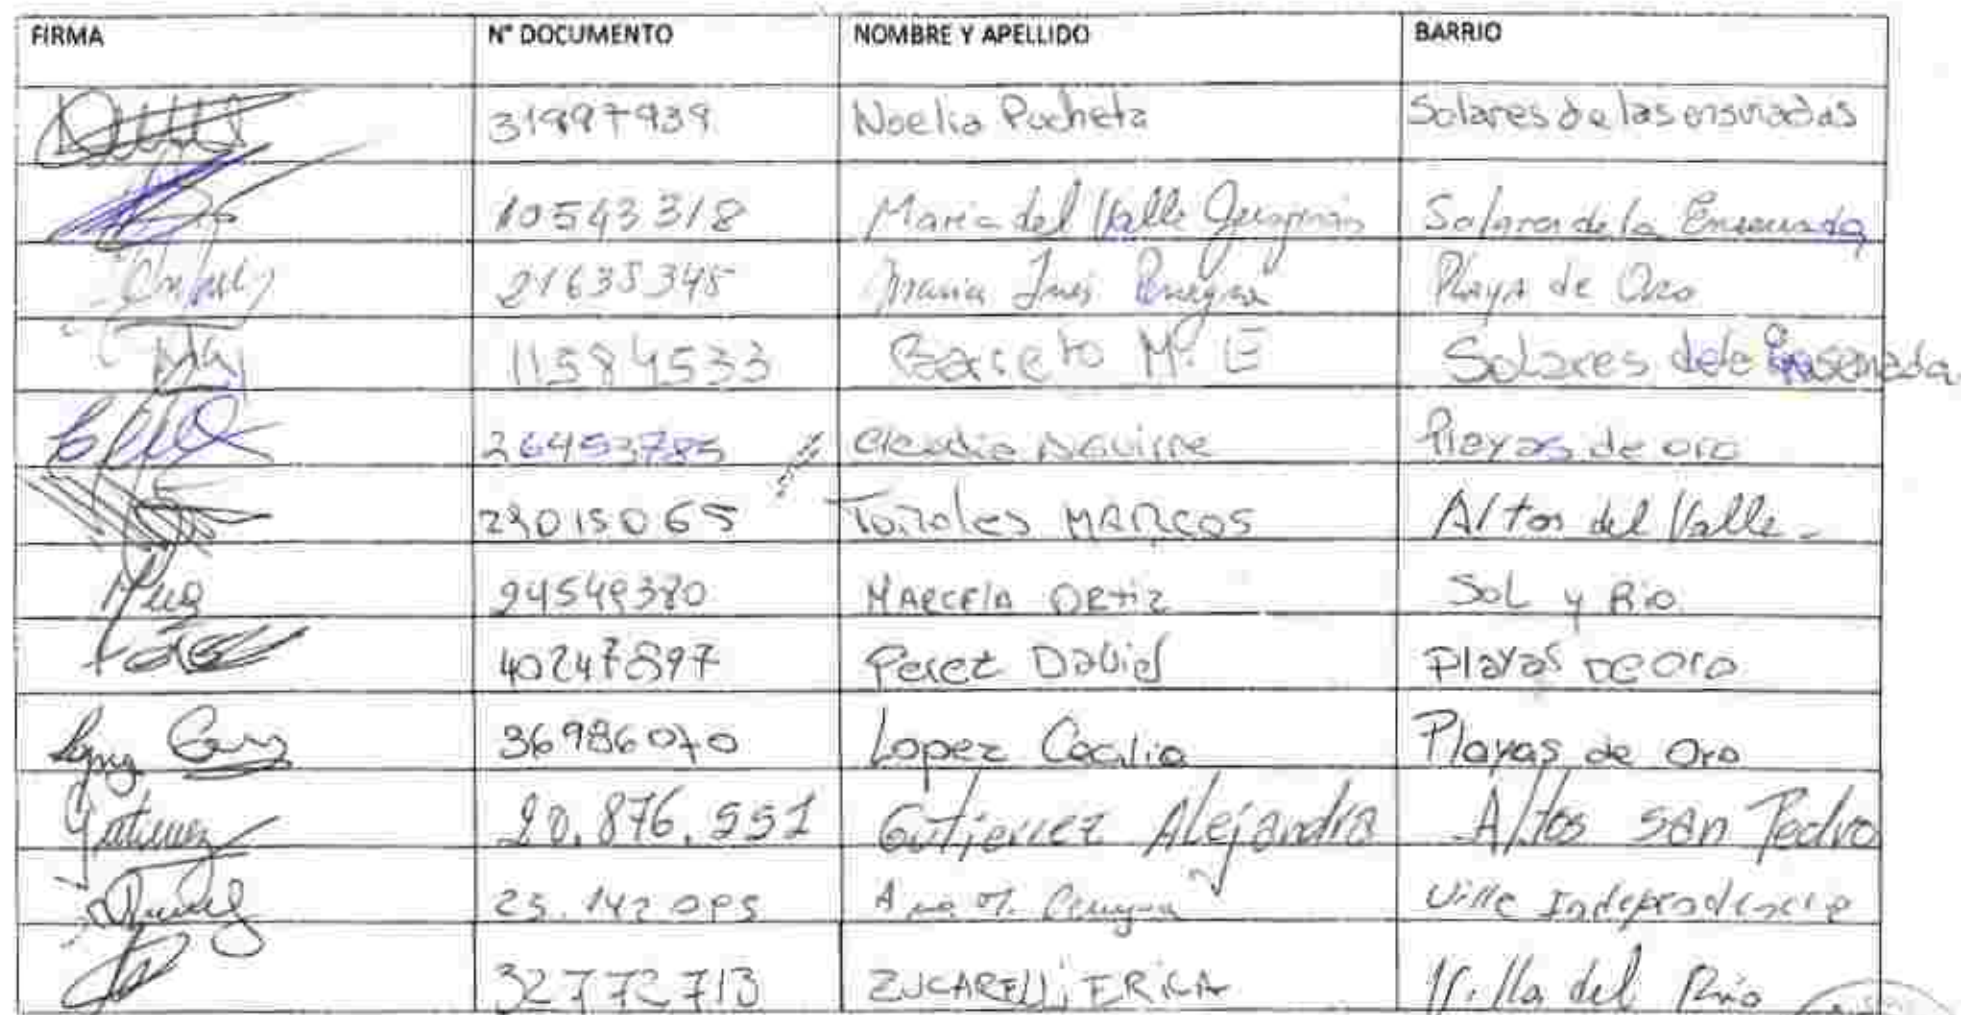 FIRMA N° DOCUMENTO NOMBRE Y APELLIDO BARRIO
31997939 Noelia Pucheta Solares de las ensenadas
10543318 Maria del Valle Guzmán Solares de la Ensenada
21635345 Maria Inés Playa de Oro
11584533 M° E Solares dela Ensenada
26453785 Claudia Aguirre Playas de oro
29015065 MARCOS Altos del Valle
MARCELA ORTIZ Sol y Rio
40247897 Perez David Playas DE Oro
Lopez 36986070 Lopez Cecilia Playas de Oro
Gutierrez 20.876.551 Gutierrez Alejandra Altos san Pedro
25.142 Ana M. Villa Independencia
32772713 ZUCARELLI ERICA Villa del Río